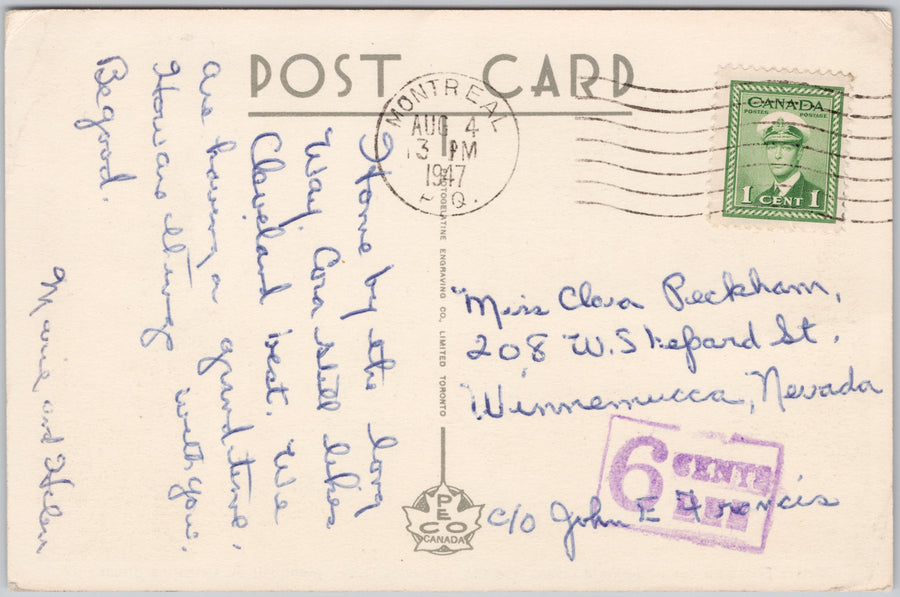 POST CARD
MONTREAL
AUG 4
13 PM
1947
P.Q.
CANADA
POSTES POSTAGE
1 CENT 1
Home by the long
way. Cora still likes
Cleveland best. We
are having a grand time.
How are things with you.
Be good.
Marie and Helen
PHOTOGELATINE ENGRAVING CO., LIMITED TORONTO
Miss Clara Peckham,
208 W. Shepard St.
Winnemucca, Nevada
6 CENTS
c/o John E Francis
PECO
CANADA